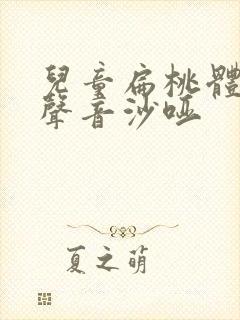 兒童扁桃體
聲音沙啞
夏之萌